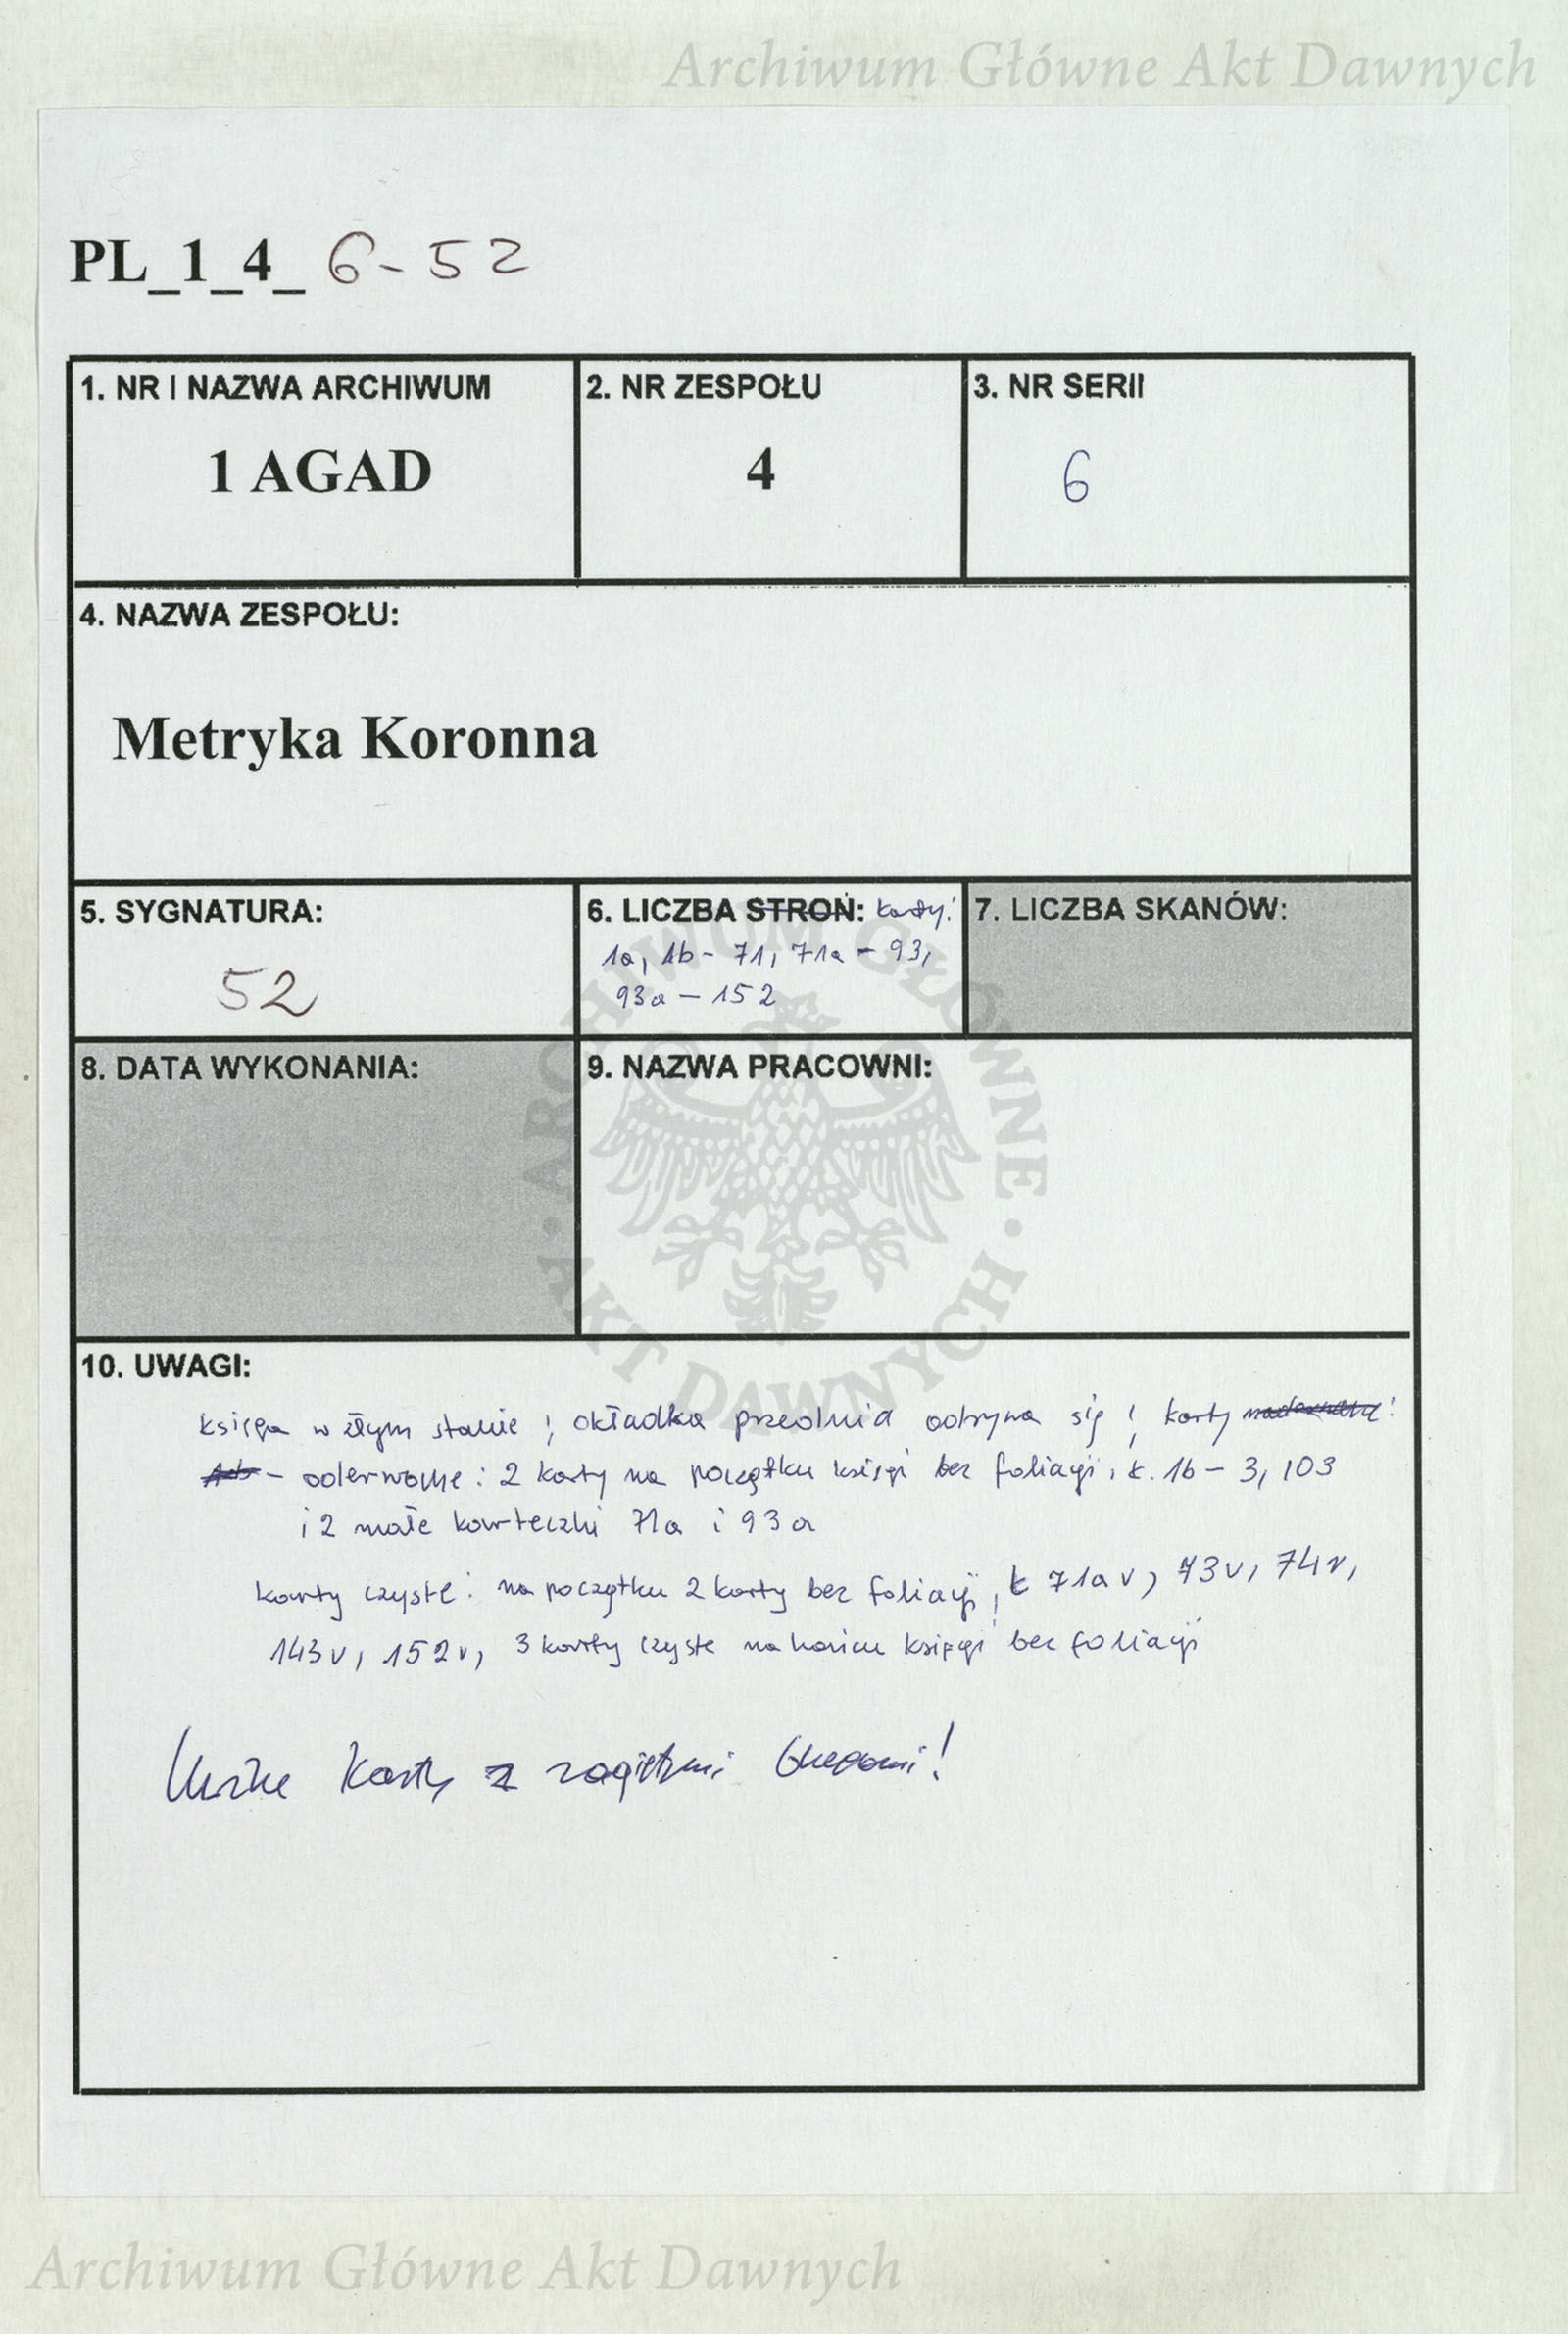 Archiwum Główne Akt Dawnych
PL_1_4_ 6-52
1. NR I NAZWA ARCHIWUM
1 AGAD
2. NR ZESPOŁU
4
3. NR SERII
6
4. NAZWA ZESPOŁU:
Metryka Koronna
5. SYGNATURA:
52
6. LICZBA STRON: karty:
1a, 1b - 71, 71a - 93,
93a - 152
7. LICZBA SKANÓW:
8. DATA WYKONANIA:
9. NAZWA PRACOWNI:
ARCHIWUM GŁÓWNE · AKT DAWNYCH ·
10. UWAGI:
księga w złym stanie ; okładka przednia odrywa się ; karty
- oderwane : 2 karty na początku księgi bez foliacji, k. 1b - 3, 103
i 2 małe karteczki 71a i 93a
karty czyste : na początku 2 karty bez foliacji, k 71av, 73v, 74v,
143v, 152v, 3 karty czyste na końcu księgi bez foliacji
karty z zagiętymi !
Archiwum Główne Akt Dawnych